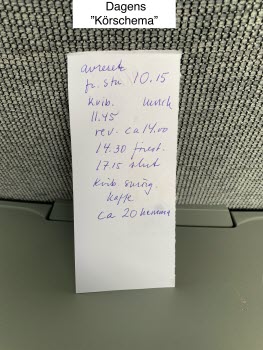 Dagens
”Körschema”
avresa
fr. sthn 10.15
kvib. lunch
11.45
rev. ca 14.00
14.30 först.
17.15 slut
kvib. smörg.
kaffe
ca 20 hemma